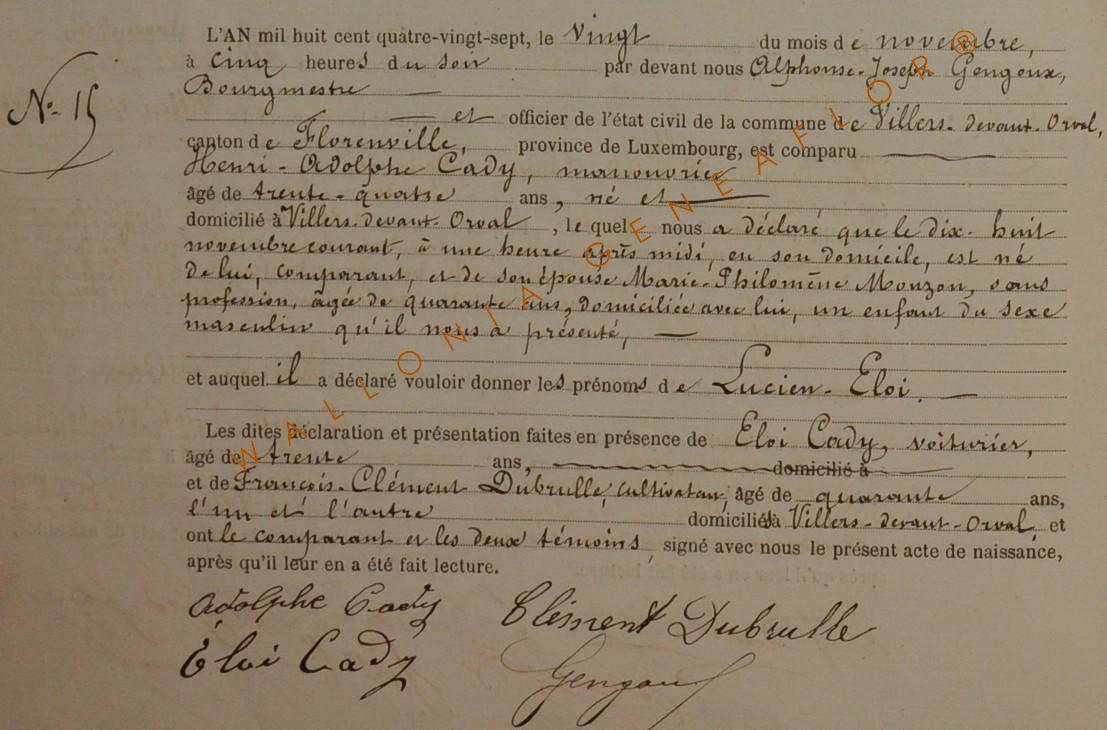 L'AN mil huit cent quatre-vingt-sept, le vingt du mois de novembre,
à cinq heures du soir par devant nous Alphonse-Joseph Gengoux,
N° 15
Bourgmestre
et officier de l'état civil de la commune de Villers-devant-Orval,
canton de Florenville, province de Luxembourg, est comparu
Henri-Adolphe Cady, manouvrier
âgé de trente-quatre ans, né et
domicilié à Villers-devant-Orval, le quel nous a déclaré que le dix-huit
novembre courant, à une heure après midi, en son domicile, est né
de lui, comparant, et de son épouse Marie-Philomène Monzon, sans
profession, âgée de quarante ans, domiciliée avec lui, un enfant du sexe
masculin qu'il nous a présenté,
et auquel il a déclaré vouloir donner les prénoms de Lucien-Eloi.
Les dites déclaration et présentation faites en présence de Eloi Cady, voiturier,
âgé de trente ans, domicilié à
et de François-Clément Dubrulle, cultivateur, âgé de quarante ans,
l'un et l'autre domiciliés à Villers-devant-Orval, et
ont le comparant et les deux témoins signé avec nous le présent acte de naissance,
après qu'il leur en a été fait lecture.
Adolphe Cady Clément Dubrulle
Eloi Cady Gengoux
WALLONIA GENEAFLOR®